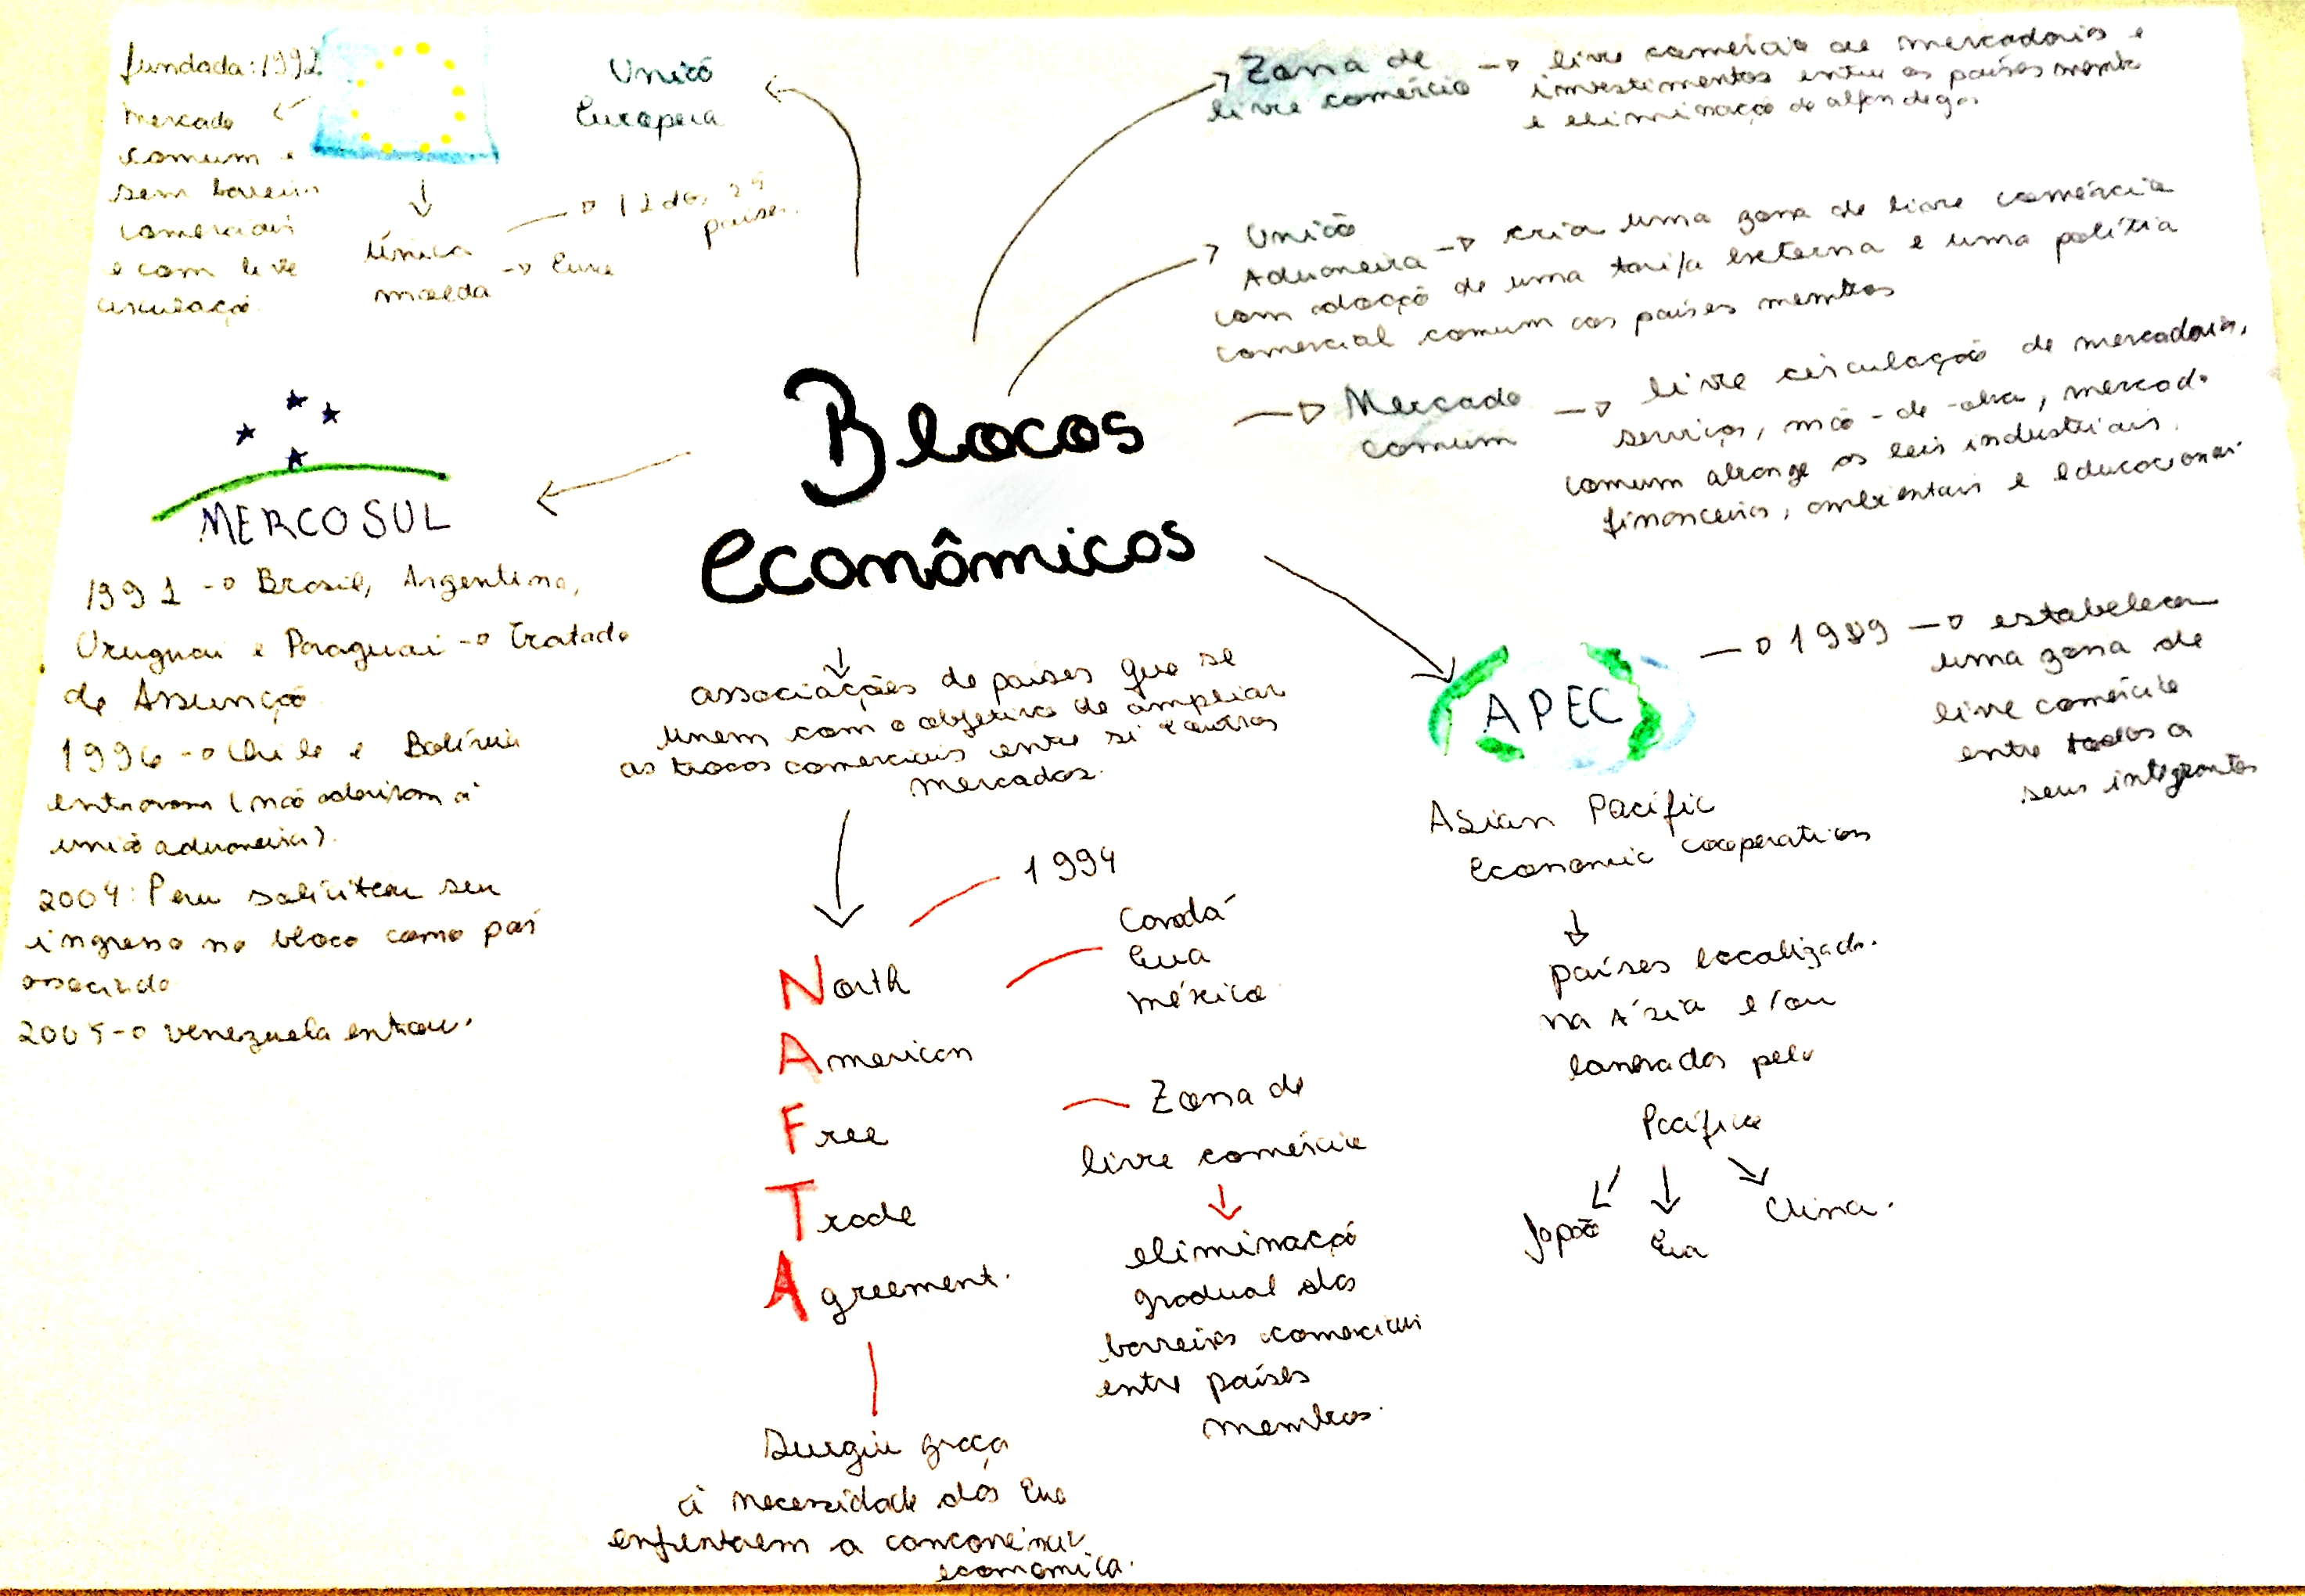 fundada: 1992
mercado
comum e
sem barreira
comerciais
e com livre
circulação
União
Europeia
única
moeda
12 dos 25
países.
Euro
Zona de
livre comércio
livre comércio de mercadorias e
investimentos entre os países memb
e eliminação de alfandegas
União
Aduaneira
cria uma zona de livre comércio
com adoção de uma tarifa externa e uma política
comercial comum aos países membros
Mercado
comum
livre circulação de mercadorias,
serviços, mão-de-obra, mercado
comum abrange as leis industriais,
financeiras, ambientais e educacionais
Blocos
econômicos
associações de países que se
unem com o objetivo de ampliar
as trocas comerciais entre si e outros
mercados.
MERCOSUL
1991 → Brasil, Argentina,
Uruguai e Paraguai → Tratado
de Assunção
1996 → Chile e Bolívia
entraram (não aderiram a
união aduaneira).
2004: Peru solicitou seu
ingresso no bloco como paí
associado
2005 → Venezuela entrou.
APEC
1989 → estabelecer
uma zona de
livre comércio
entre todos o
seus integrantes
Asian Pacific
Economic Cooperation
países localizado.
na Ásia e/ou
banhados pelo
Pacífico
Japão
Eua
China.
North
American
Free
Trade
Agreement.
1994
Canadá
Eua
México
Zona de
livre comércio
eliminação
gradual das
barreiras comerciais
entre países
membros.
Surgiu graça
à necessidade dos Eua
a
economica.